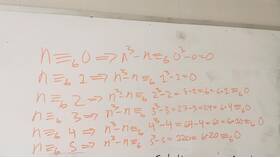 n≡₆0 ⇒ n³-n≡₆0³-0=0
n≡₆1 ⇒ n³-n≡₆1³-1=0
n≡₆2 ⇒ n³-n≡₆2³-2=8-2=6=6·1≡₆0
n≡₆3 ⇒ n³-n≡₆3³-3=27-3=24=6·4≡₆0
n≡₆4 ⇒ n³-n≡₆4³-4=64-4=60=6·10≡₆0
n≡₆5 ⇒ n³-n≡₆5³-5=120=6·20≡₆0